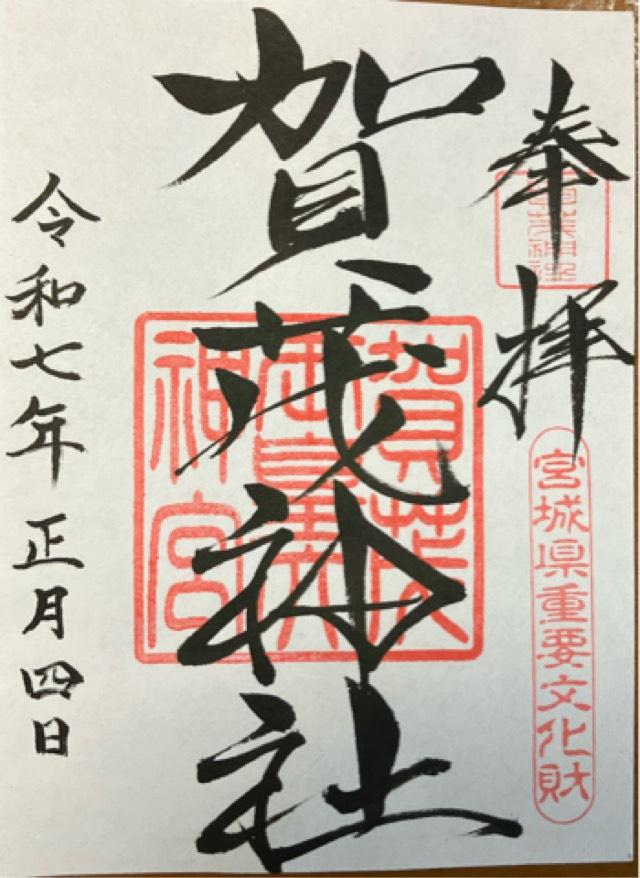 奉拝
賀茂神社
宮城県重要文化財
賀茂神社
賀茂
神宮
令和七年正月四日